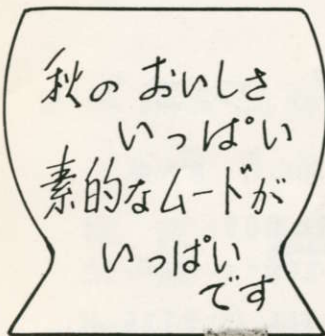 秋の おいしさ
いっぱい
素的なムードが
いっぱい
です